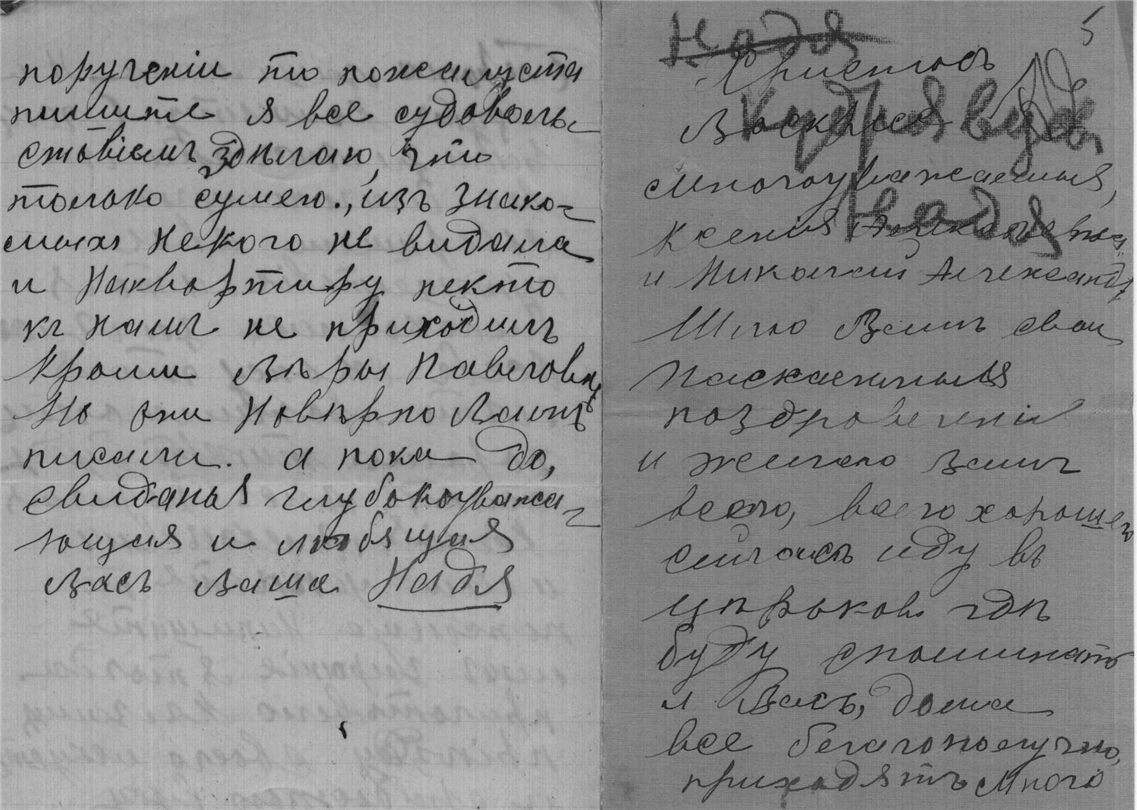 порученiи то пожалуста
пишите я все судоволь-
ствiемъ здѣлаю, что
только сумею., изъ знако-
мыхъ некого не видала
и Наквартиру некто
къ намъ не приходитъ
Кроми Вѣры Павловны
Но они Новѣрно Вамъ
писали. а пока до,
свиданья глубокоуважа-
ющая и любящая
Васъ Ваша Надя
5
Надя
Христосъ
Кудрявцева
Воскресе
многоуважаемыя,
Надя
Ксенiя
и Николай Александр.
Шлю Вамъ свои
Пасхальныя
поздровленiя
и желаю Вамъ
всего, всего хорошего
сейчасъ иду въ
цѣрьковь гдѣ
буду споминать
и Васъ, дома
все благополучно,
приходятъ много